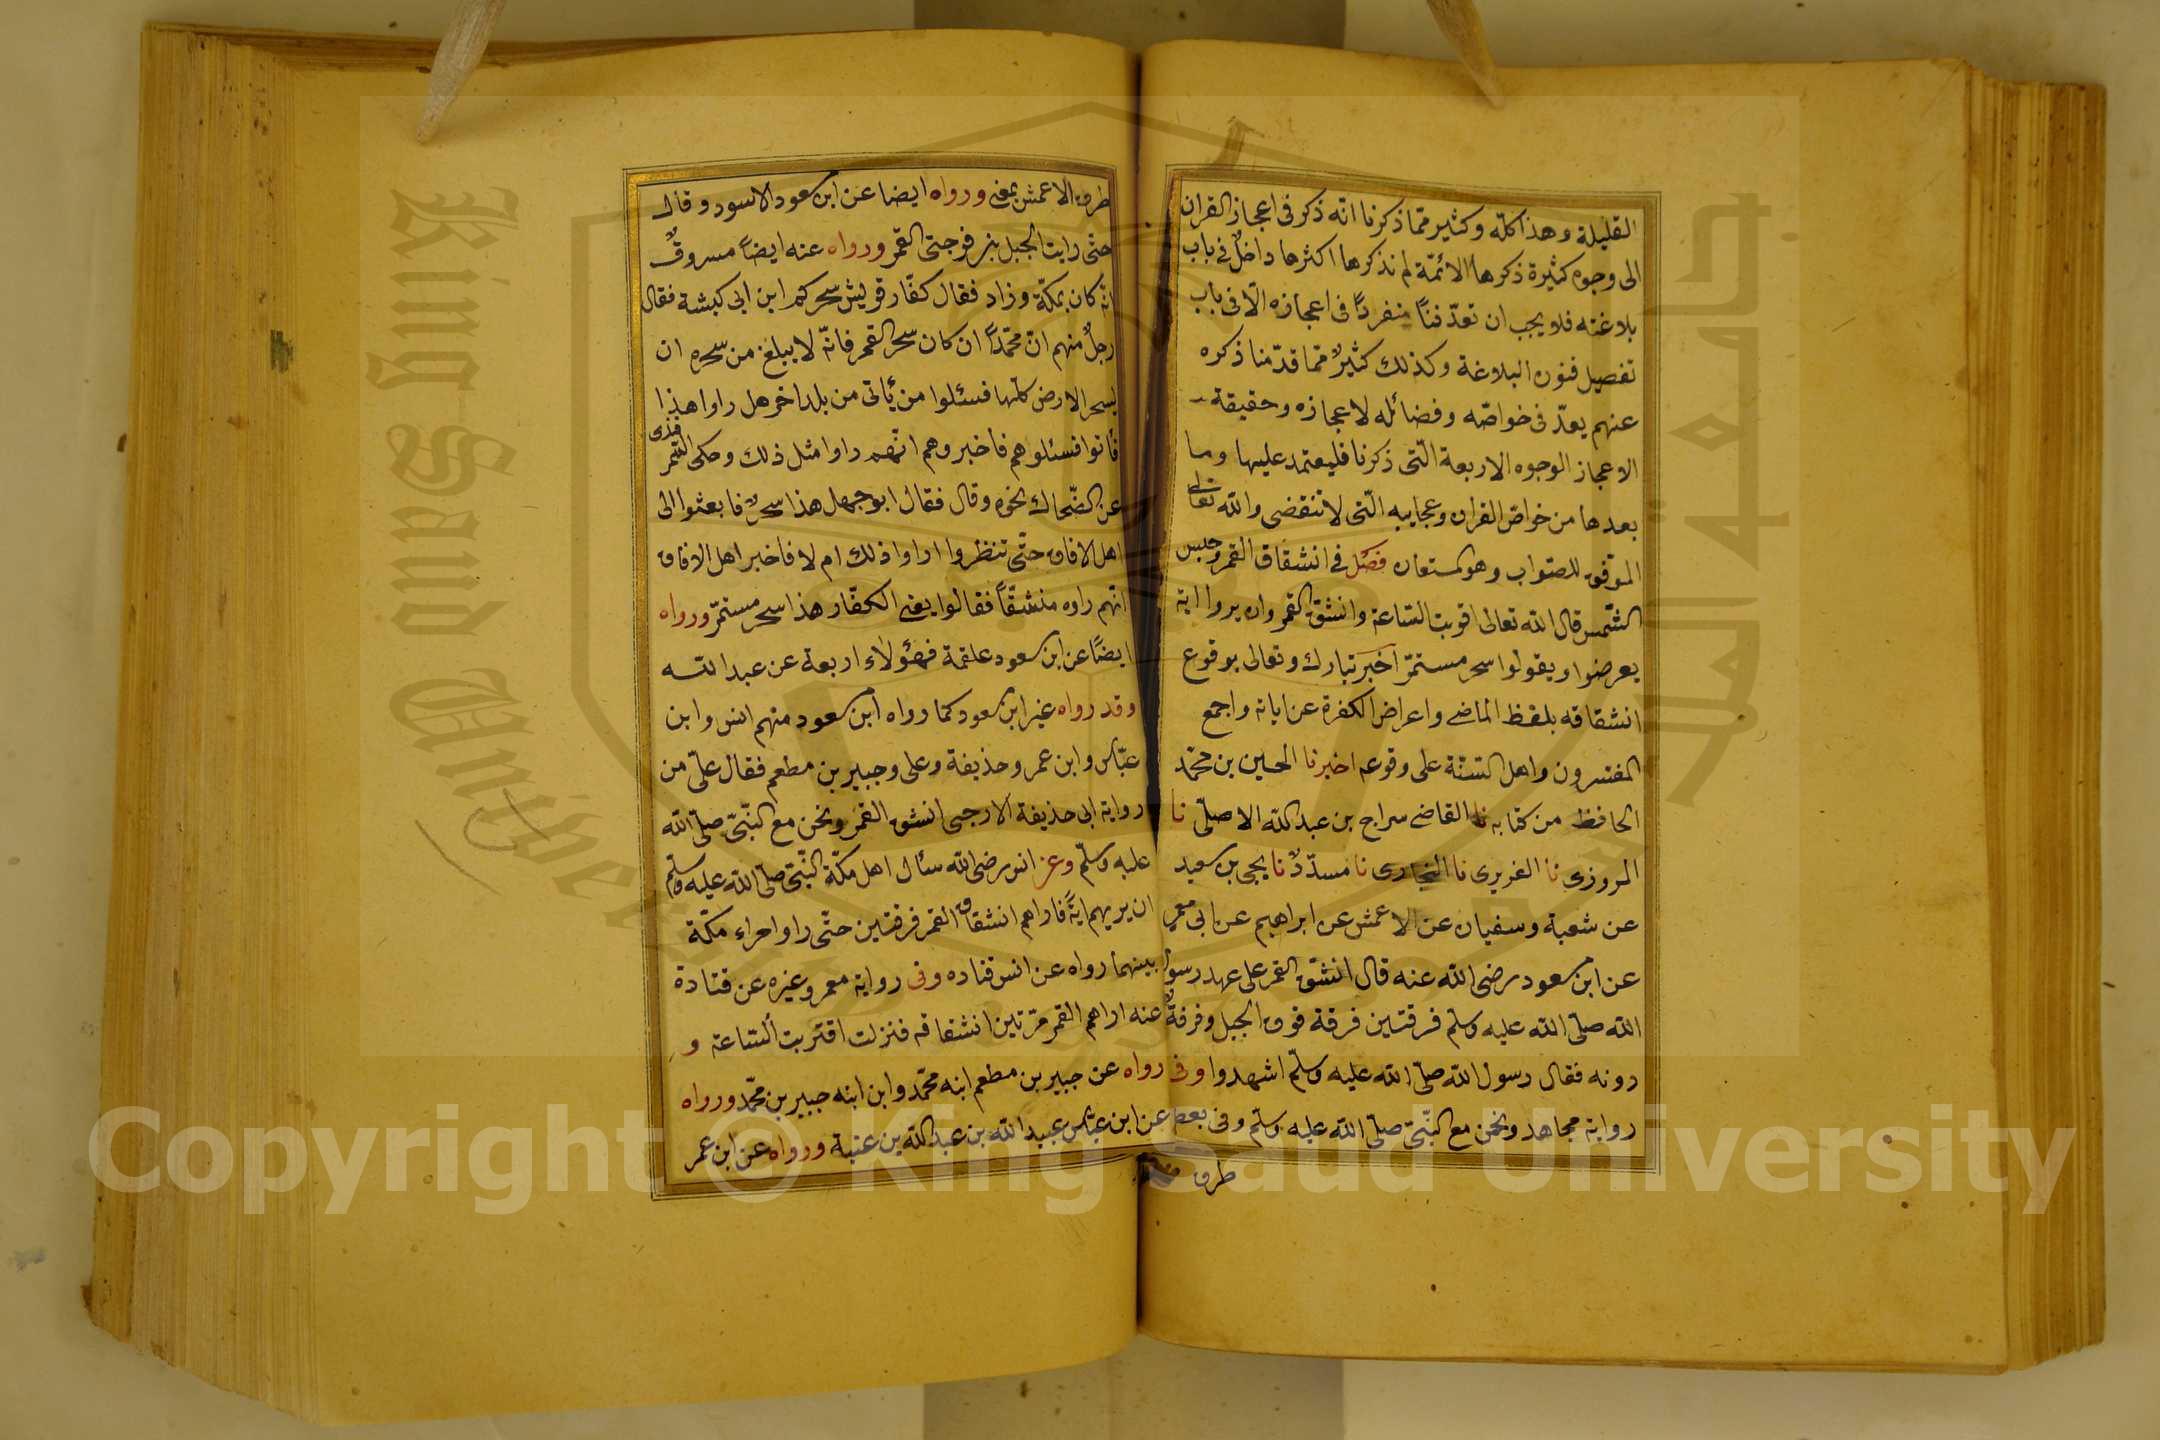 القليلة وهذا كلّه وكثير ممّا ذكرنا انّه ذكر فى اعجاز القران
الى وجوه كثيرة ذكرها الائمّة لم نذكرها اكثرها داخلٌ فى باب
بلاغته فلا يجب ان تعدّ فنّاً منفرداً فى اعجازه الّا فى باب
تفصيل فنون البلاغة وكذلك كثيرٌ ممّا قدّمنا ذكره
عنهم يعدّ فى خواصّه وفضائله لا عجازه وحقيقة
الاعجاز الوجوه الاربعة الّتى ذكرنا فليعتمد عليها وما
بعدها من خواصّ القران وعجايبه الّتى لا تنقضى والله تعالى
الموّفق للصّواب وهو المستعان فصل فى انشقاق القمر وحبس
الشّمس قال الله تعالى اقتربت السّاعة وانشقّ القمر وان يروا اية
يعرضوا ويقولوا سحر مستمرّ اخبر تبارك وتعالى بوقوع
انشقاقه بلفظ الماضى واعراض الكفرة عن اياته واجمع
المفسرون واهل السّنّة على وقوعه اخبرنا الحسين بن محمّد
الحافظ من كتابه نا القاضى سراج بن عبد الله الاصلّى نا
المروزى نا الفربرى نا البخارى نا مسدّدٌ نا يحيى بن سعيد
عن شعبة وسفيان عن الاعمش عن ابراهيم عن ابى معمر
عن ابن مسعود رضى الله عنه قال انشقّ القمر على عهد رسول
الله صلّى الله عليه وسلّم فرقتين فرقة فوق الجبل وفرقةٌ
دونه فقال رسول الله صلّى الله عليه وسلّم اشهدوا وفى
رواية مجاهد ونحن مع النّبىّ صلّى الله عليه وسلّم وفى بعض
طرق
طرق الاعمش بمعنى ورواه ايضا عن ابن مسعود الاسود وقال
حتّى رايت الجبل بين فرجتى القمر ورواه عنه ايضاً مسروقٌ
انّه كان بمكّة وزاد فقال كفّار قريش سحركم ابن ابى كبشة فقال
رجلٌ منهم انّ محمّداً ان كان سحر القمر فانّه لا يبلغ من سحره ان
يسحر الارض كلّها فسئلوا من يأتى من بلد اخر هل راوا هذا
فأتوا فسئلوهم فأخبروهم انّهم راوا مثل ذلك وحكى السّمرقندى
عن الضّحاك نحوه وقال فقال ابو جهل هذا سحرٌ فابعثوا الى
اهل الافاق حتّى تنظروا اراوا ذلك ام لا فاخبر اهل الافاق
انّهم راوه منشقّاً فقالوا يعنى الكفّار هذا سحر مستمرّ ورواه
ايضاً عن ابن مسعود علقمة فهؤلاء اربعة عن عبد الله
وقد رواه غير ابن مسعود كما رواه ابن مسعود منهم انس وابن
عبّاس وابن عمر وحذيفة وعلى وجبير بن مطعم فقال علىّ من
رواية ابى حذيفة الارجبى انشق القمر ونحن مع النّبىّ صلّى الله
عليه وسلّم وعن انس رضى الله سأل اهل مكّة النّبىّ صلّى الله عليه وسلّم
ان يريهم ايةً فاراهم انشقاق القمر فرقتين حتّى راوا حراء مكّة
بينهما رواه عن انس قتاده وفى رواية معمر وغيره عن قتادة
عنه اراهم القمر مرّتين انشقاقه فنزلت اقتربت السّاعة و
رواه عن جبير بن مطعم ابنه محمّد وابن ابنه جبير بن محمّد ورواه
عن ابن عبّاس عبيد الله بن عبد الله بن عتبة ورواه عن ابن عمر
King Saud University
جامعة الملك
Copyright © King Saud University